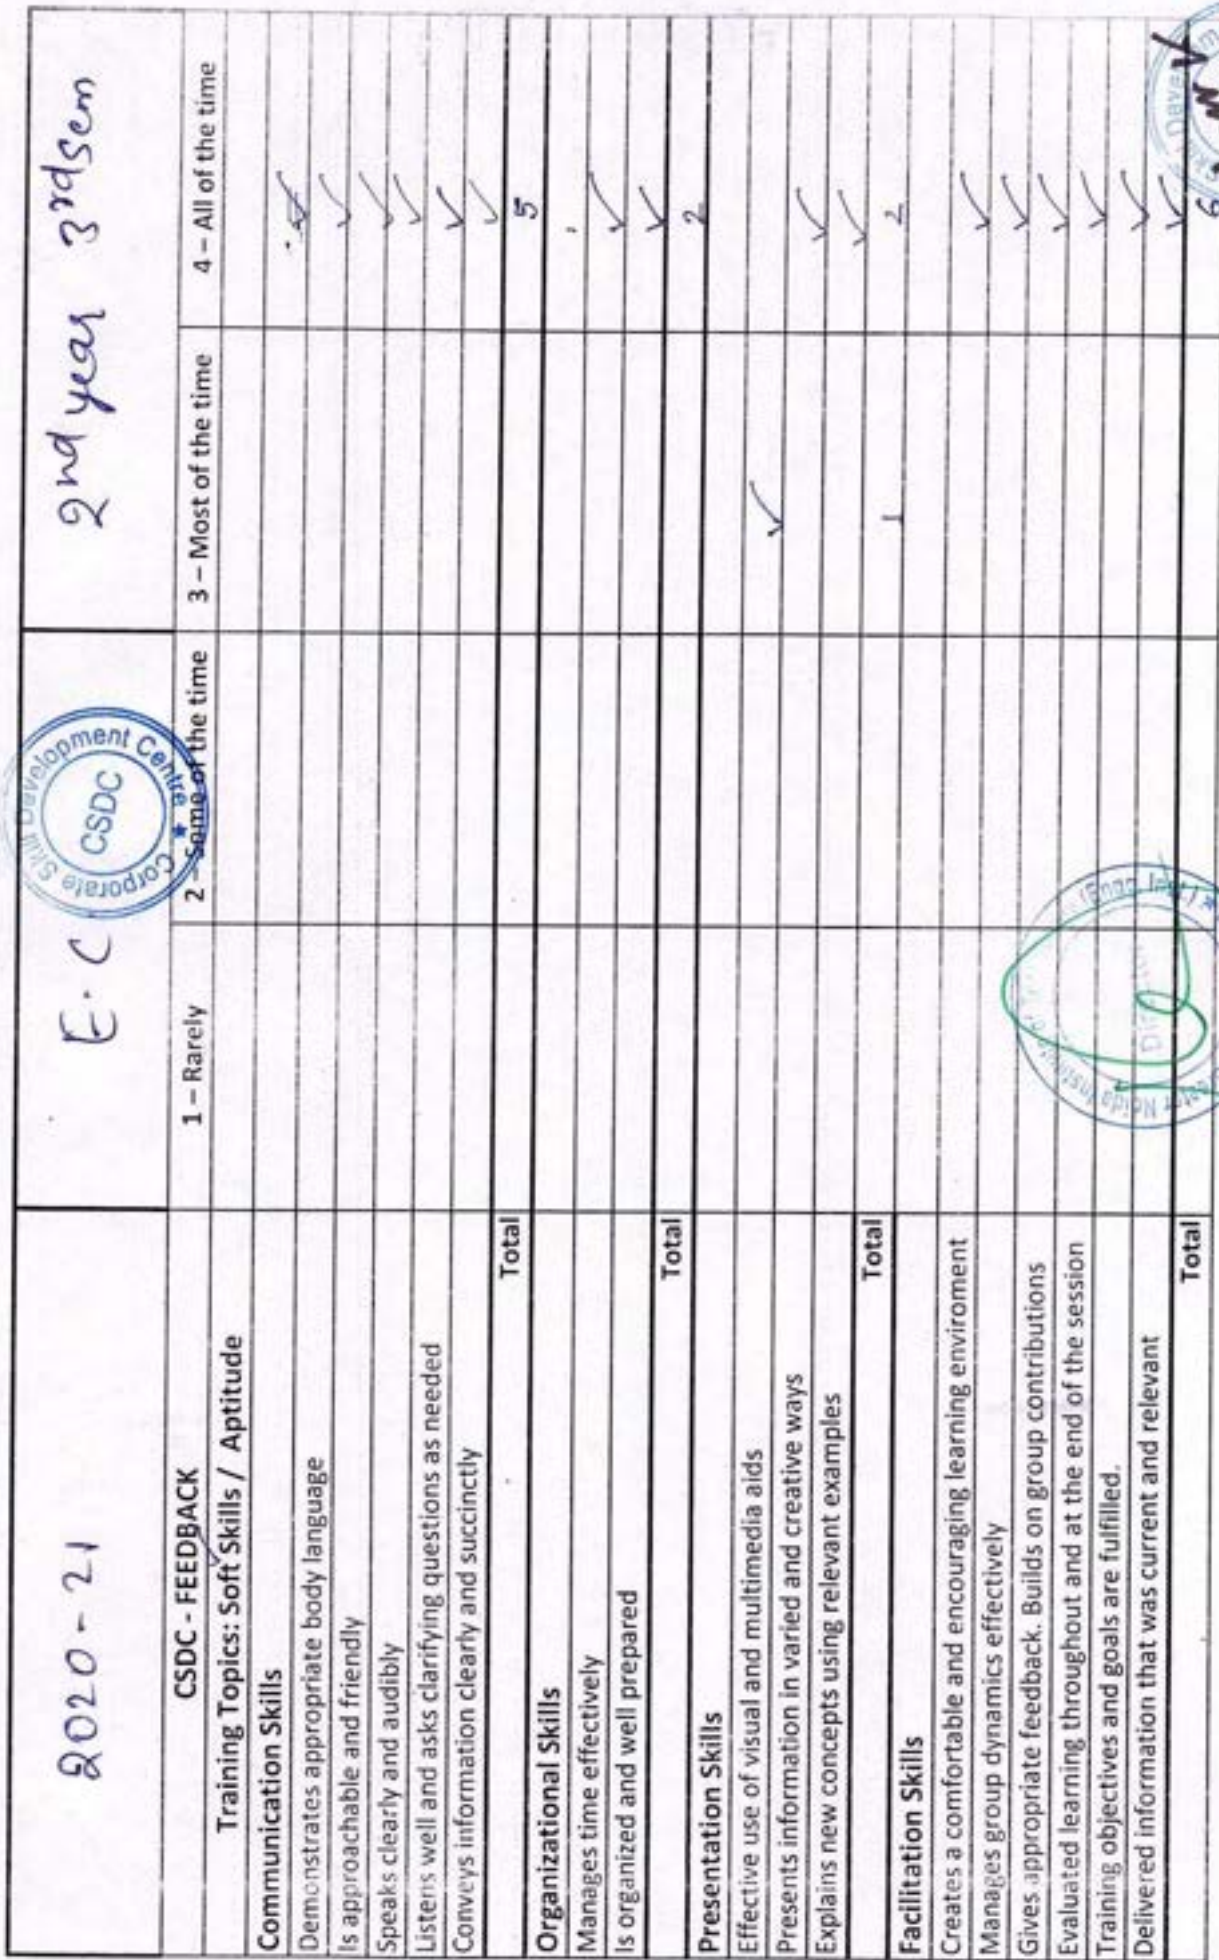 2020-21 E.C 2nd year 3rd sem
Corporate Skill Development Centre ★
CSDC
CSDC - FEEDBACK 1 – Rarely 2 – Some of the time 3 – Most of the time 4 – All of the time
Training Topics: Soft Skills / Aptitude
Communication Skills
Demonstrates appropriate body language ✓
Is approachable and friendly ✓
Speaks clearly and audibly ✓
Listens well and asks clarifying questions as needed ✓
Conveys information clearly and succinctly ✓
Total 5
Organizational Skills
Manages time effectively ✓
Is organized and well prepared ✓
Total 2
Presentation Skills
Effective use of visual and multimedia aids ✓
Presents information in varied and creative ways ✓
Explains new concepts using relevant examples ✓
Total 1 2
Facilitation Skills
Creates a comfortable and encouraging learning enviroment ✓
Manages group dynamics effectively ✓
Gives appropriate feedback. Builds on group contributions ✓
Evaluated learning throughout and at the end of the session ✓
Training objectives and goals are fulfilled. ✓
Delivered information that was current and relevant ✓
Total 6
Noida